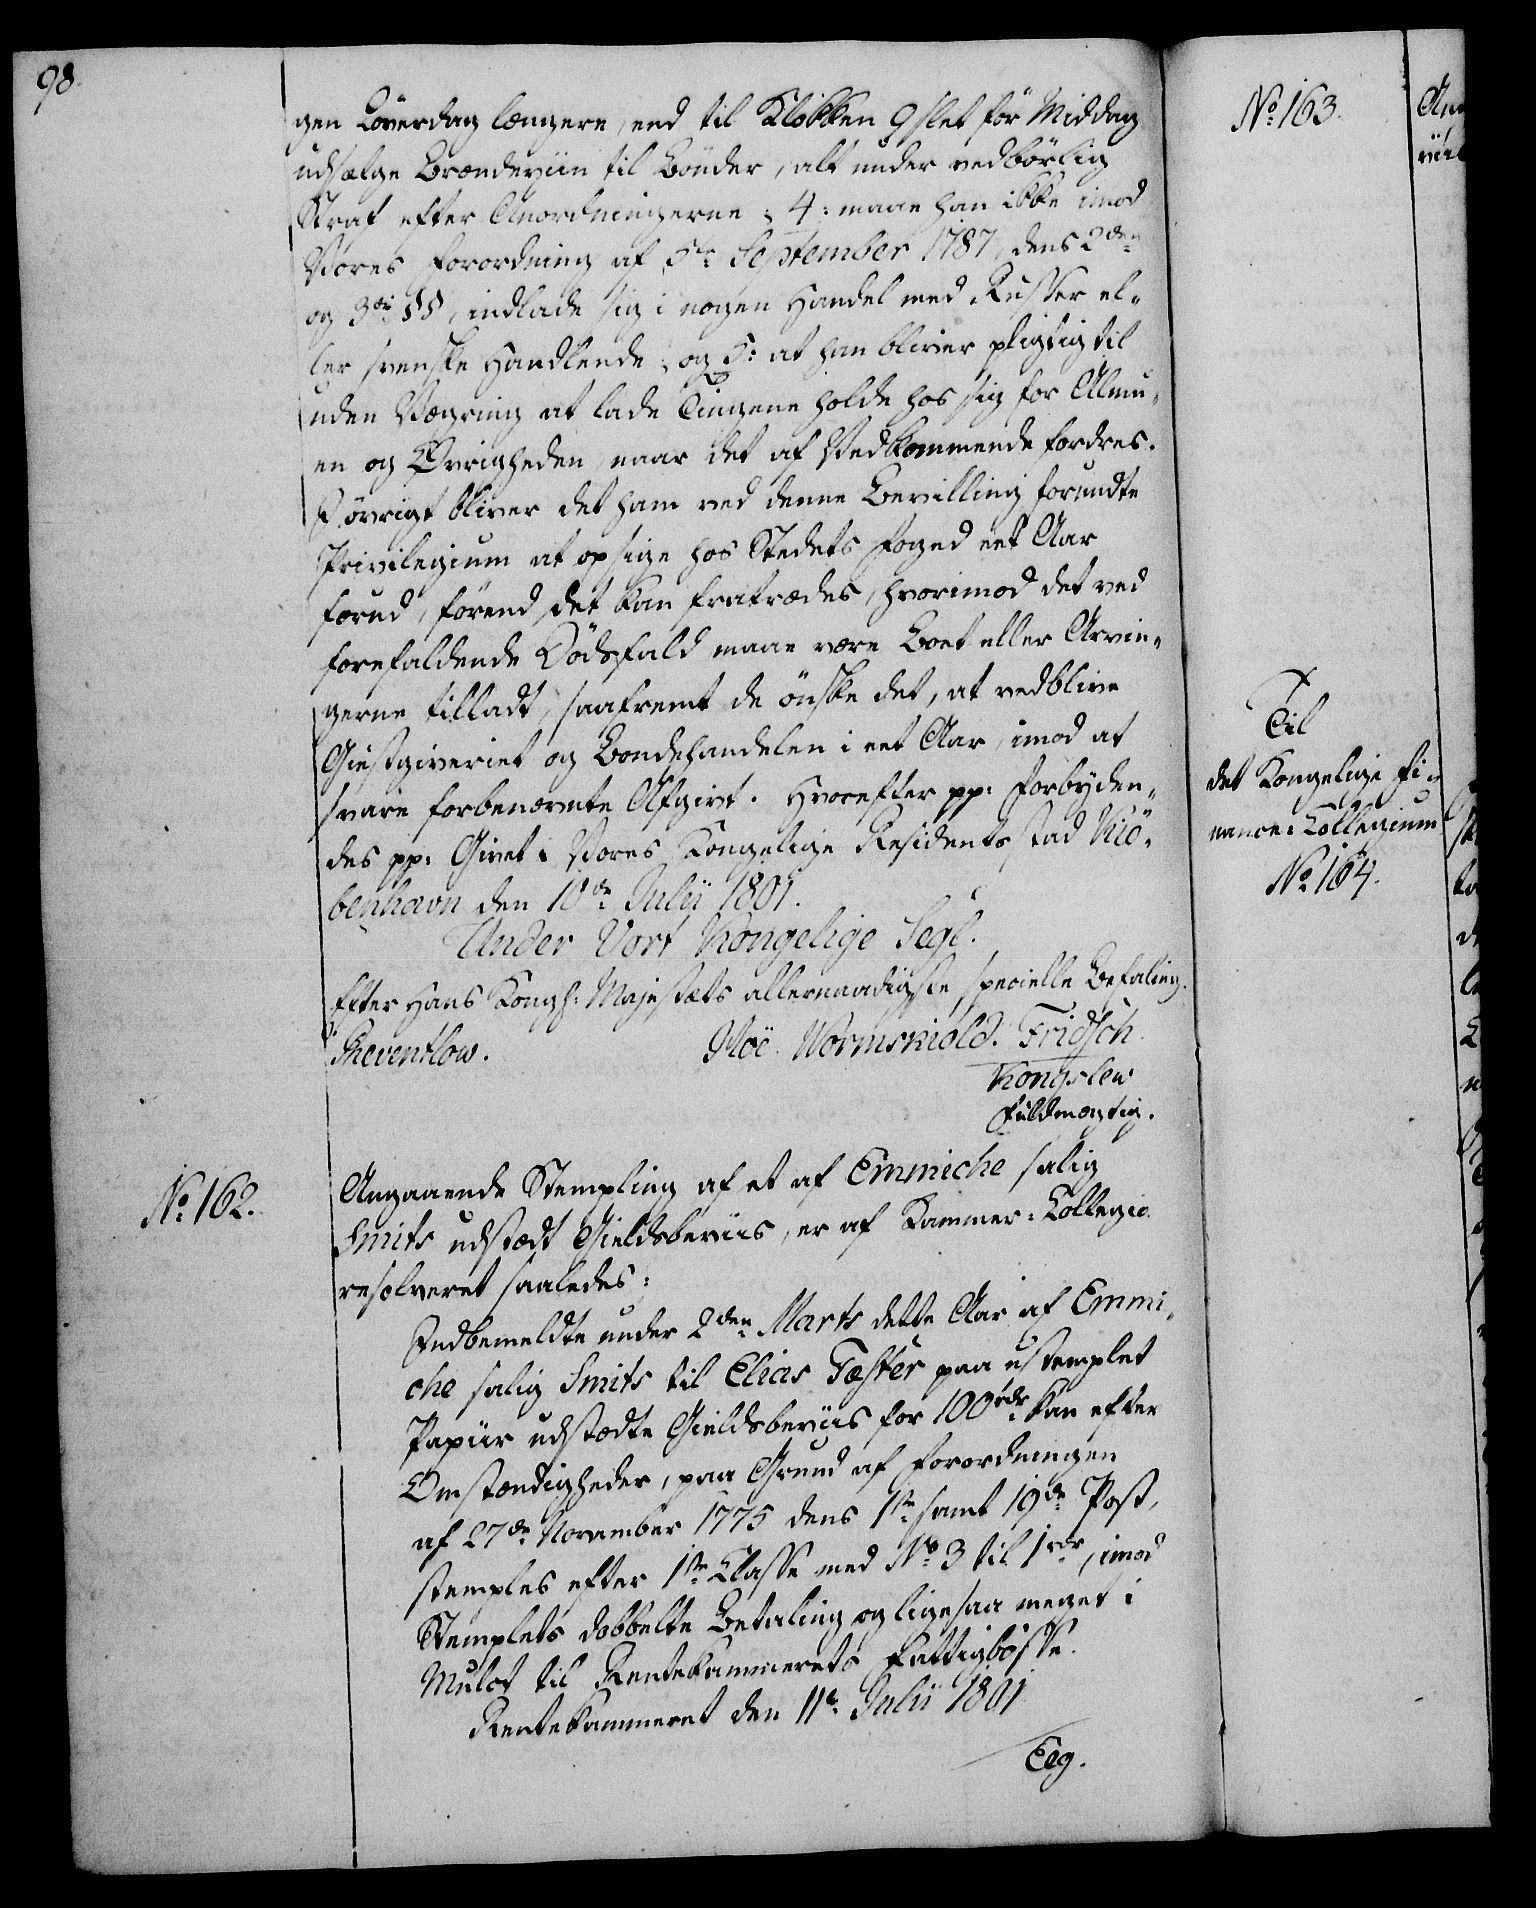 98.
gen Löverdag længere, end til Klokken 9 slet för Middag
udsælge Brændeviin til Bönder, alt under vedbörlig
Straf efter Anordningerne; 4: maae han ikke imod
Vores Forordning af 5te September 1787, dens 2den
og 3die §§, indlade sig i nogen Handel med Russer el-
ler svenske Handlende; og 5: at han bliver pligtig til
uden Vægring at lade Tingene holde hos sig for Almu-
en og Övrigheden, naar det af Vedkommende fordres.
I övrigt bliver det ham ved denne Bevilling forundte
Privilegium at opsige hos Stedets Foged eet Aar
forud, förend det kan fratrædes, hvorimod det ved
forefaldende Dödsfald maae være Boet eller Arvin-
gerne tilladt, saafremt de önske det, at vedblive
Giestgiveriet og Bondehandelen i eet Aar, imod at
svare forbenævnte Afgivt. Hvorefter pp: Forbyden-
des pp: Givet i Vores Kongelige Residentsstad Kiö-
benhavn den 10de Julii 1801.
Under Vort Kongelige Segl.
Efter Hans Kongl: Majestæts allernaadigste specielle Befaling.
Reventlow. Moe. Wormskiold. Fridsch.
Kongslew
Fuldmægtig.
No. 162.
Angaaende Stempling af et af Emmiche salig
Smits udstædt Gieldsbeviis, er af Kammer-Collegio
resolveret saaledes:
Indbemeldte under 2den Marts dette Aar af Emmi-
che salig Smits til Elias Tæster paa ustemplet
Papiir udstædte Gieldsbeviis for 100 rdr. kan efter
Omstændigheder, paa Grund af Forordningen
af 27de November 1775 dens 1ste samt 19de Post,
stemples efter 1ste Classe med No. 3 til 1 rdr, imod
Stemplets dobbelte Betaling og ligesaa meget i
Mulct til Rentekammerets Fattigbösse.
Rentekammeret den 11te Julii 1801
Eeg.
No. 163.
Til
det Kongelige Fi-
nance-Collegium
No. 164.